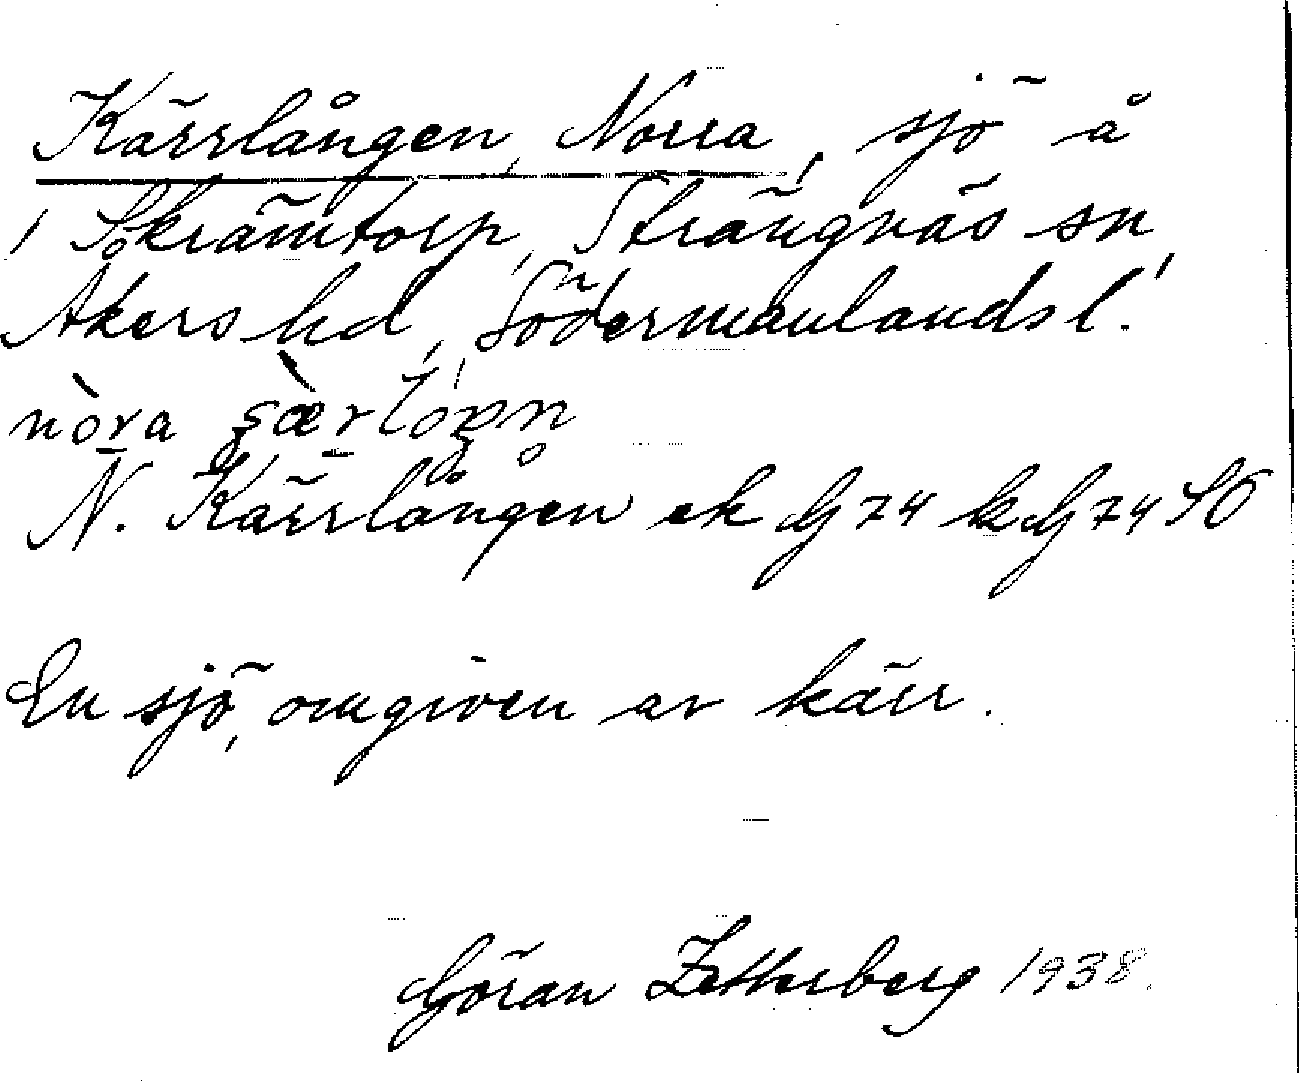 Kärrlången, Norra, sjö å
Skrämtorp, Strängnäs sn,
Åkers hd, Södermanlands l.
nòra
N. Kärrlången ek G 74 k G 74 SO
En sjö, omgiven av kärr.
Göran Zetterberg 1938.